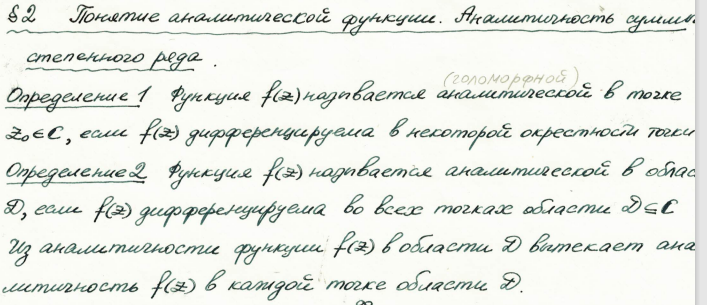 §2 Понятие аналитической функции. Аналитичность суммы
степенного ряда.
(голоморфной)
Определение 1 Функция f(z) называется аналитической в точке
z₀∈C, если f(z) дифференцируема в некоторой окрестности точки
Определение 2 Функция f(z) называется аналитической в облас
D, если f(z) дифференцируема во всех точках области D⊆C
Из аналитичности функции f(z) в области D вытекает ана
литичность f(z) в каждой точке области D.